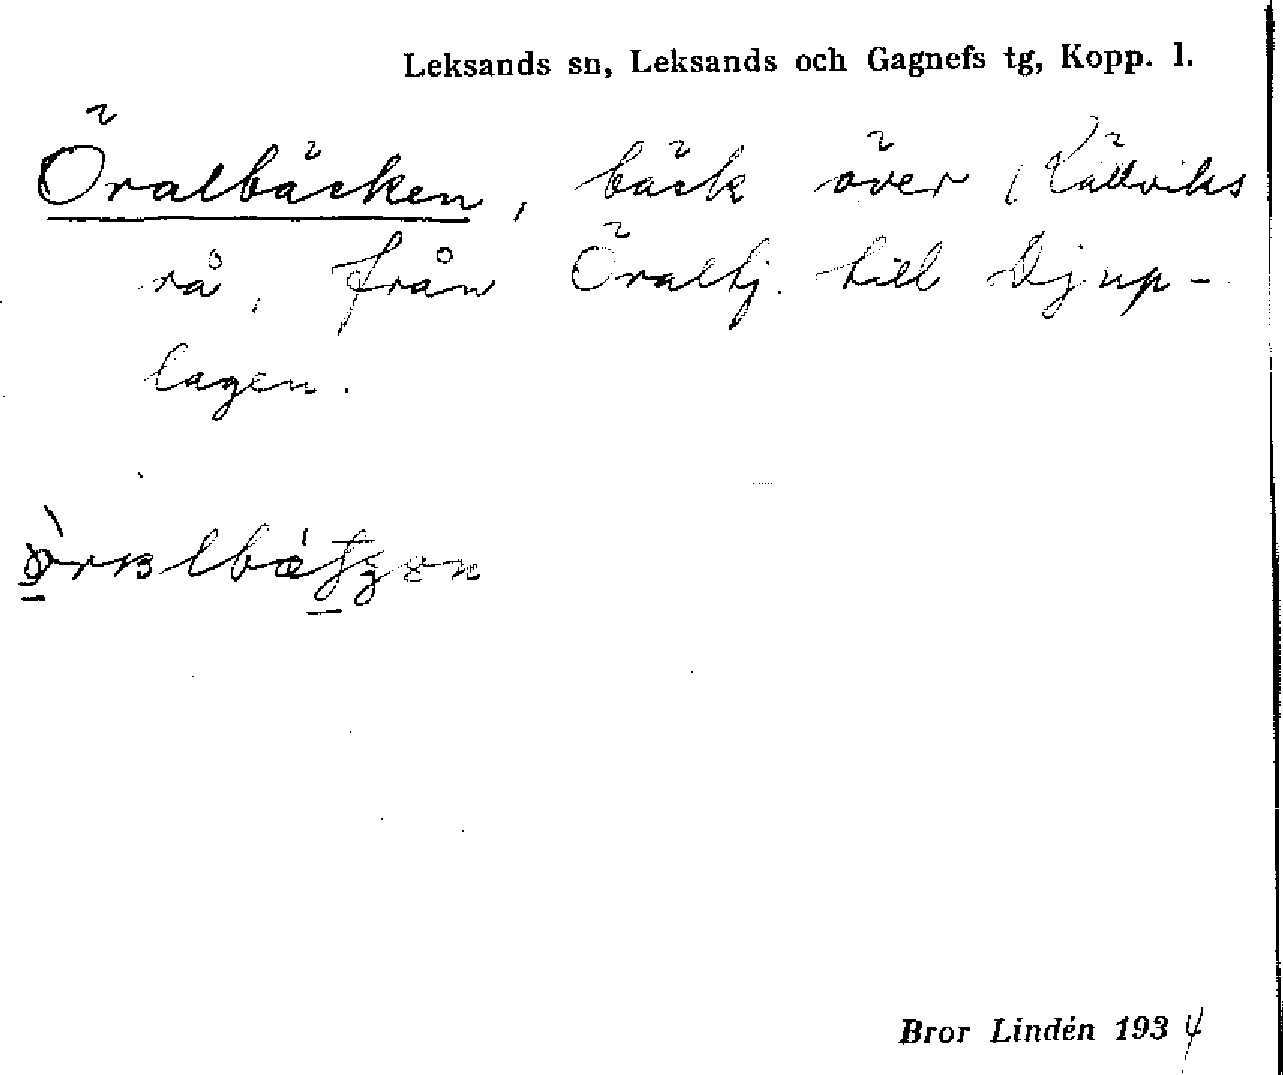 Leksands sn, Leksands och Gagnefs tg, Kopp. l.
Öralbäcken, bäck över Rättviks
rå, från Öraltj. till Djup-
lagen.
Bror Lindén 1934